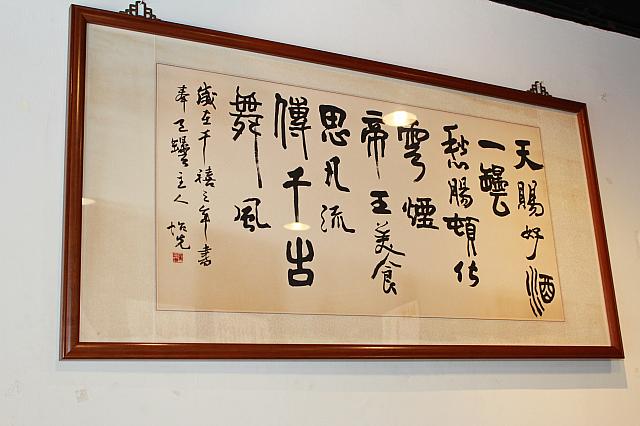 天賜好酒
一罈
愁腸頓化
雲煙
帝王美食
思凡流
傳千古
舞風
歲在千禧之年書
奉天罈主人 怡先